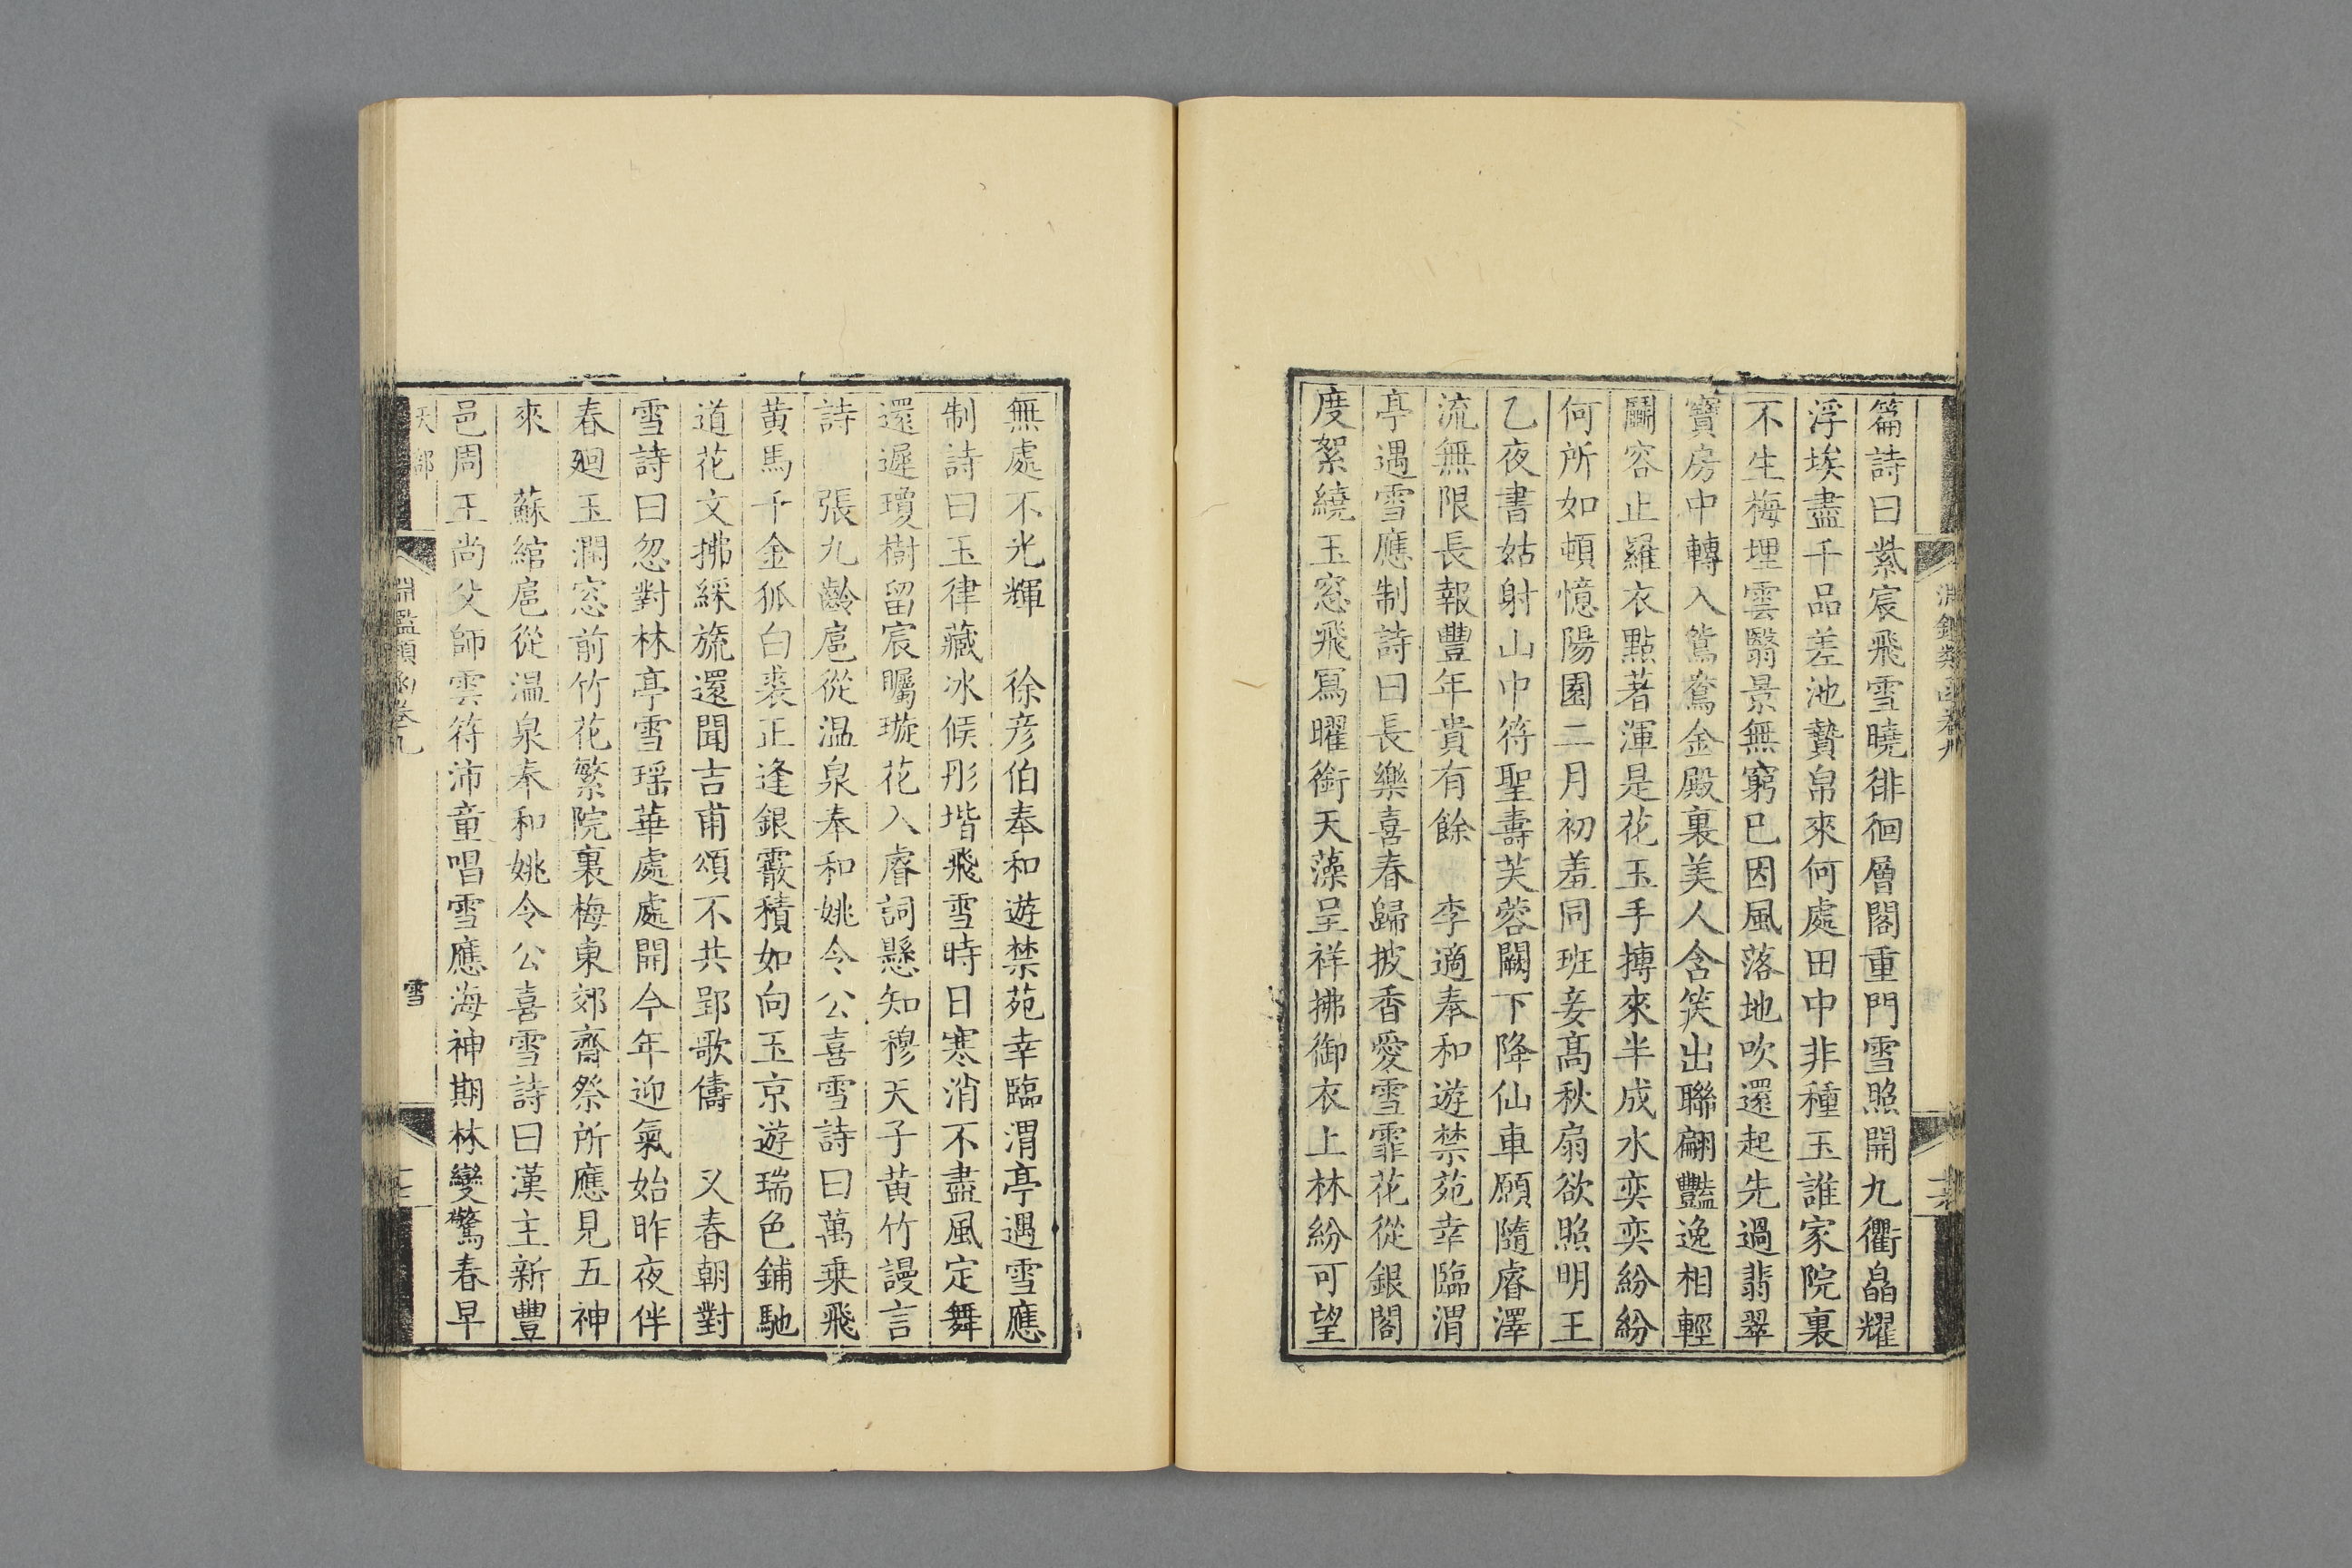 篇詩曰紫宸飛雪曉徘徊層閣重門雪照開九衢皛耀
浮埃盡千品差池贄帛來何處田中非種玉誰家院裏
不生梅埋雲翳景無窮已因風落地吹還起先過翡翠
寶房中轉入鴛鴦金殿裏美人含笑出聯翩豔逸相輕
鬬容止羅衣點著渾是花玉手摶來半成水奕奕紛紛
何所如頓憶陽園二月初羞同班妾高秋扇欲照明王
乙夜書姑射山中符聖壽芙蓉闕下降仙車願隨睿澤
流無限長報豐年貴有餘　李適奉和遊禁苑幸臨渭
亭遇雪應制詩曰長樂喜春歸披香愛雪霏花從銀閣
度絮繞玉窓飛冩曜銜天藻呈祥拂御衣上林紛可望
無處不光輝　徐彦伯奉和遊禁苑幸臨渭亭遇雪應
制詩曰玉律藏冰候彤堦飛雪時日寒消不盡風定舞
還遲瓊樹留宸矚璇花入睿詞懸知穆天子黄竹謾言
詩　張九齡扈從温泉奉和姚令公喜雪詩曰萬乗飛
黄馬千金狐白裘正逢銀霰積如向玉京遊瑞色鋪馳
道花文拂綵旒還聞吉甫頌不共郢歌儔　又春朝對
雪詩曰忽對林亭雪瑶華處處開今年迎氣始昨夜伴
春廻玉潤窓前竹花繁院裏梅東郊齋祭所應見五神
來　蘇綰扈從温泉奉和姚令公喜雪詩曰漢主新豐
邑周王尚父師雲符沛童唱雪應海神期林變驚春早
天部
淵鑑類函卷九
雪